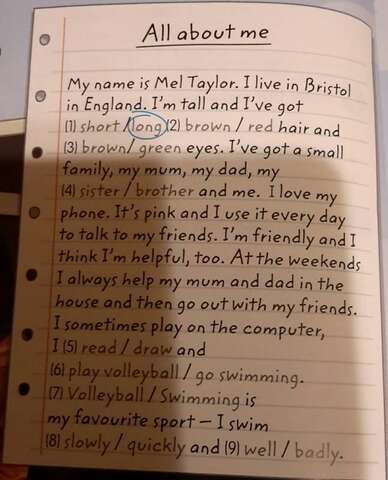 All about me
My name is Mel Taylor. I live in Bristol
in England. I'm tall and I've got
(1) short / long (2) brown / red hair and
(3) brown / green eyes. I've got a small
family, my mum, my dad, my
(4) sister / brother and me. I love my
phone. It's pink and I use it every day
to talk to my friends. I'm friendly and I
think I'm helpful, too. At the weekends
I always help my mum and dad in the
house and then go out with my friends.
I sometimes play on the computer,
I (5) read / draw and
(6) play volleyball / go swimming.
(7) Volleyball / Swimming is
my favourite sport – I swim
(8) slowly / quickly and (9) well / badly.